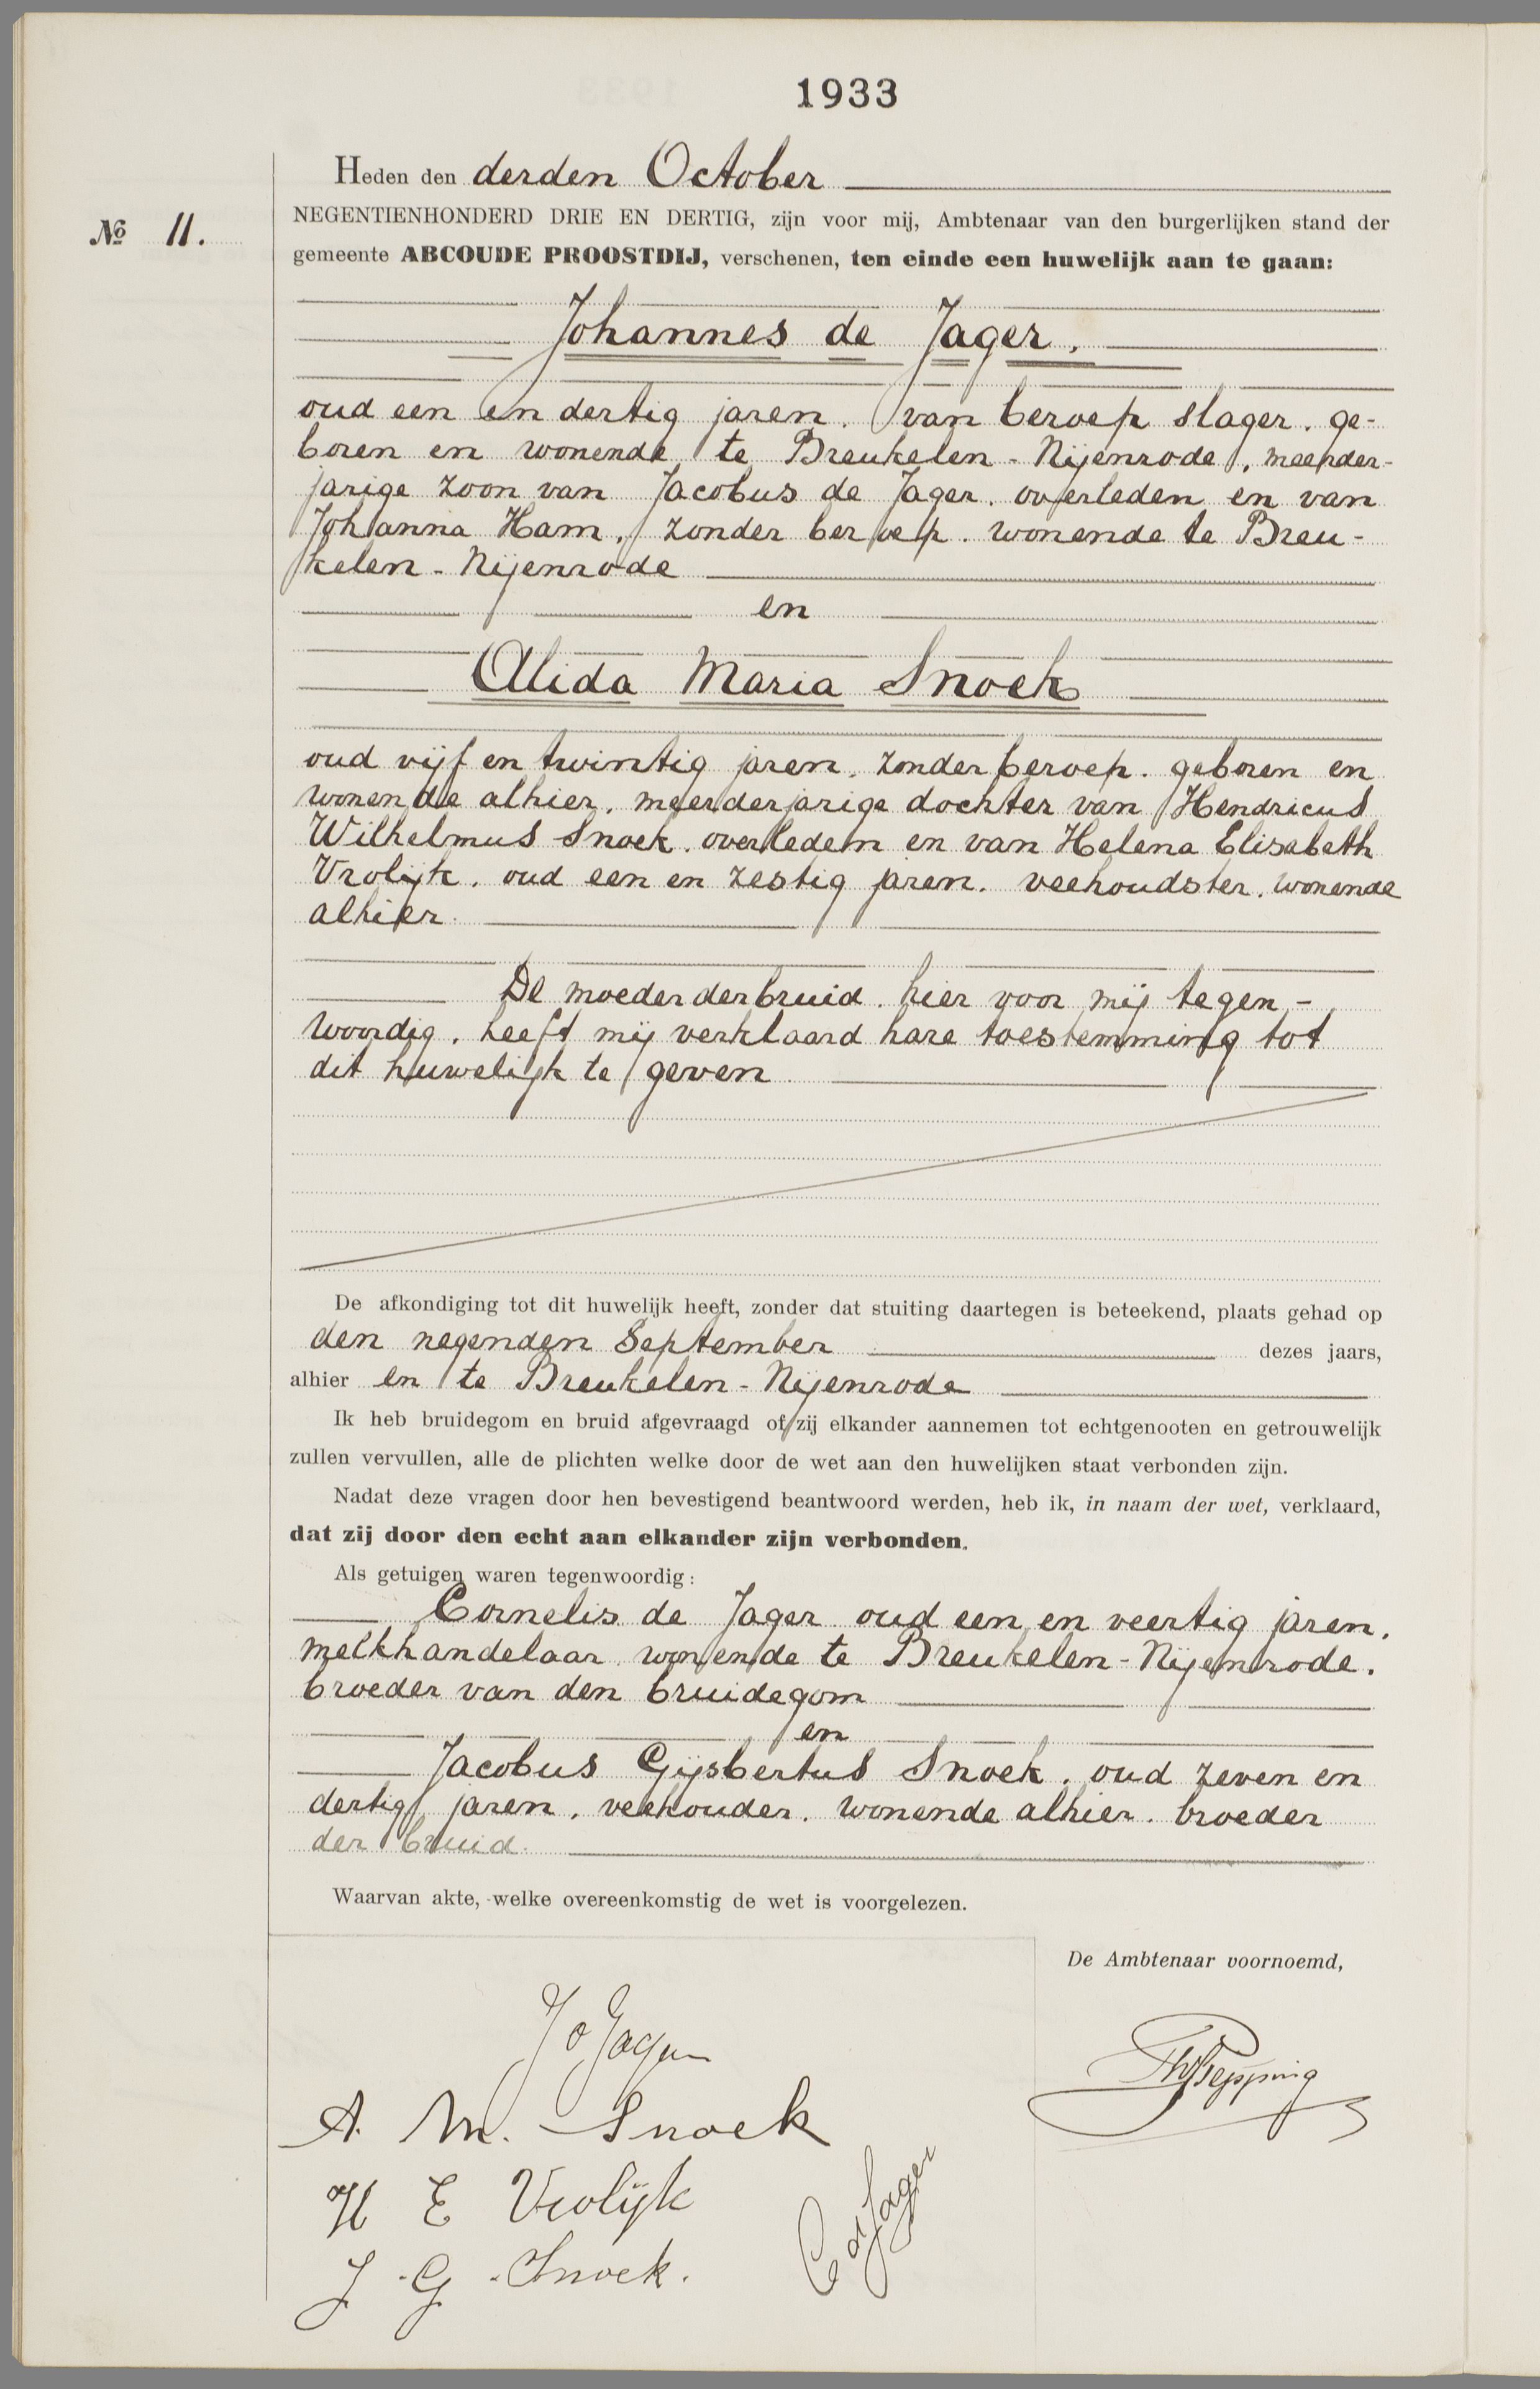 1933
Heden den derden October
NEGENTIENHONDERD DRIE EN DERTIG, zijn voor mij, Ambtenaar van den burgerlijken stand der
№ 11.
gemeente ABCOUDE PROOSTDIJ, verschenen, ten einde een huwelijk aan te gaan:
Johannes de Jager.
oud een en dertig jaren. van beroep slager. ge-
boren en wonende te Breukelen-Nijenrode, meerder-
jarige zoon van Jacobus de Jager. overleden en van
Johanna Ham, zonder beroep. wonende te Breu-
kelen-Nijenrode
en
Alida Maria Snoek
oud vijf en twintig jaren. zonder beroep. geboren en
wonende alhier. meerderjarige dochter van Hendricus
Wilhelmus Snoek. overleden en van Helena Elisabeth
Vrolijk. oud een en zestig jaren. veehoudster. wonende
alhier.
De moeder der bruid. hier voor mij tegen-
woordig. heeft mij verklaard hare toestemming tot
dit huwelijk te geven
De afkondiging tot dit huwelijk heeft, zonder dat stuiting daartegen is beteekend, plaats gehad op
den negenden September dezes jaars,
alhier en te Breukelen-Nijenrode
Ik heb bruidegom en bruid afgevraagd of zij elkander aannemen tot echtgenooten en getrouwelijk
zullen vervullen, alle de plichten welke door de wet aan den huwelijken staat verbonden zijn.
Nadat deze vragen door hen bevestigend beantwoord werden, heb ik, in naam der wet, verklaard,
dat zij door den echt aan elkander zijn verbonden.
Als getuigen waren tegenwoordig:
Cornelis de Jager oud een en veertig jaren.
melkhandelaar wonende te Breukelen-Nijenrode.
broeder van den bruidegom
en
Jacobus Gijsbertus Snoek. oud zeven en
dertig jaren. veehouder. wonende alhier. broeder
der bruid.
Waarvan akte, welke overeenkomstig de wet is voorgelezen.
De Ambtenaar voornoemd,
J d Jager
A. M. Snoek
H E Vrolijk
C d Jager
J. G. Snoek.